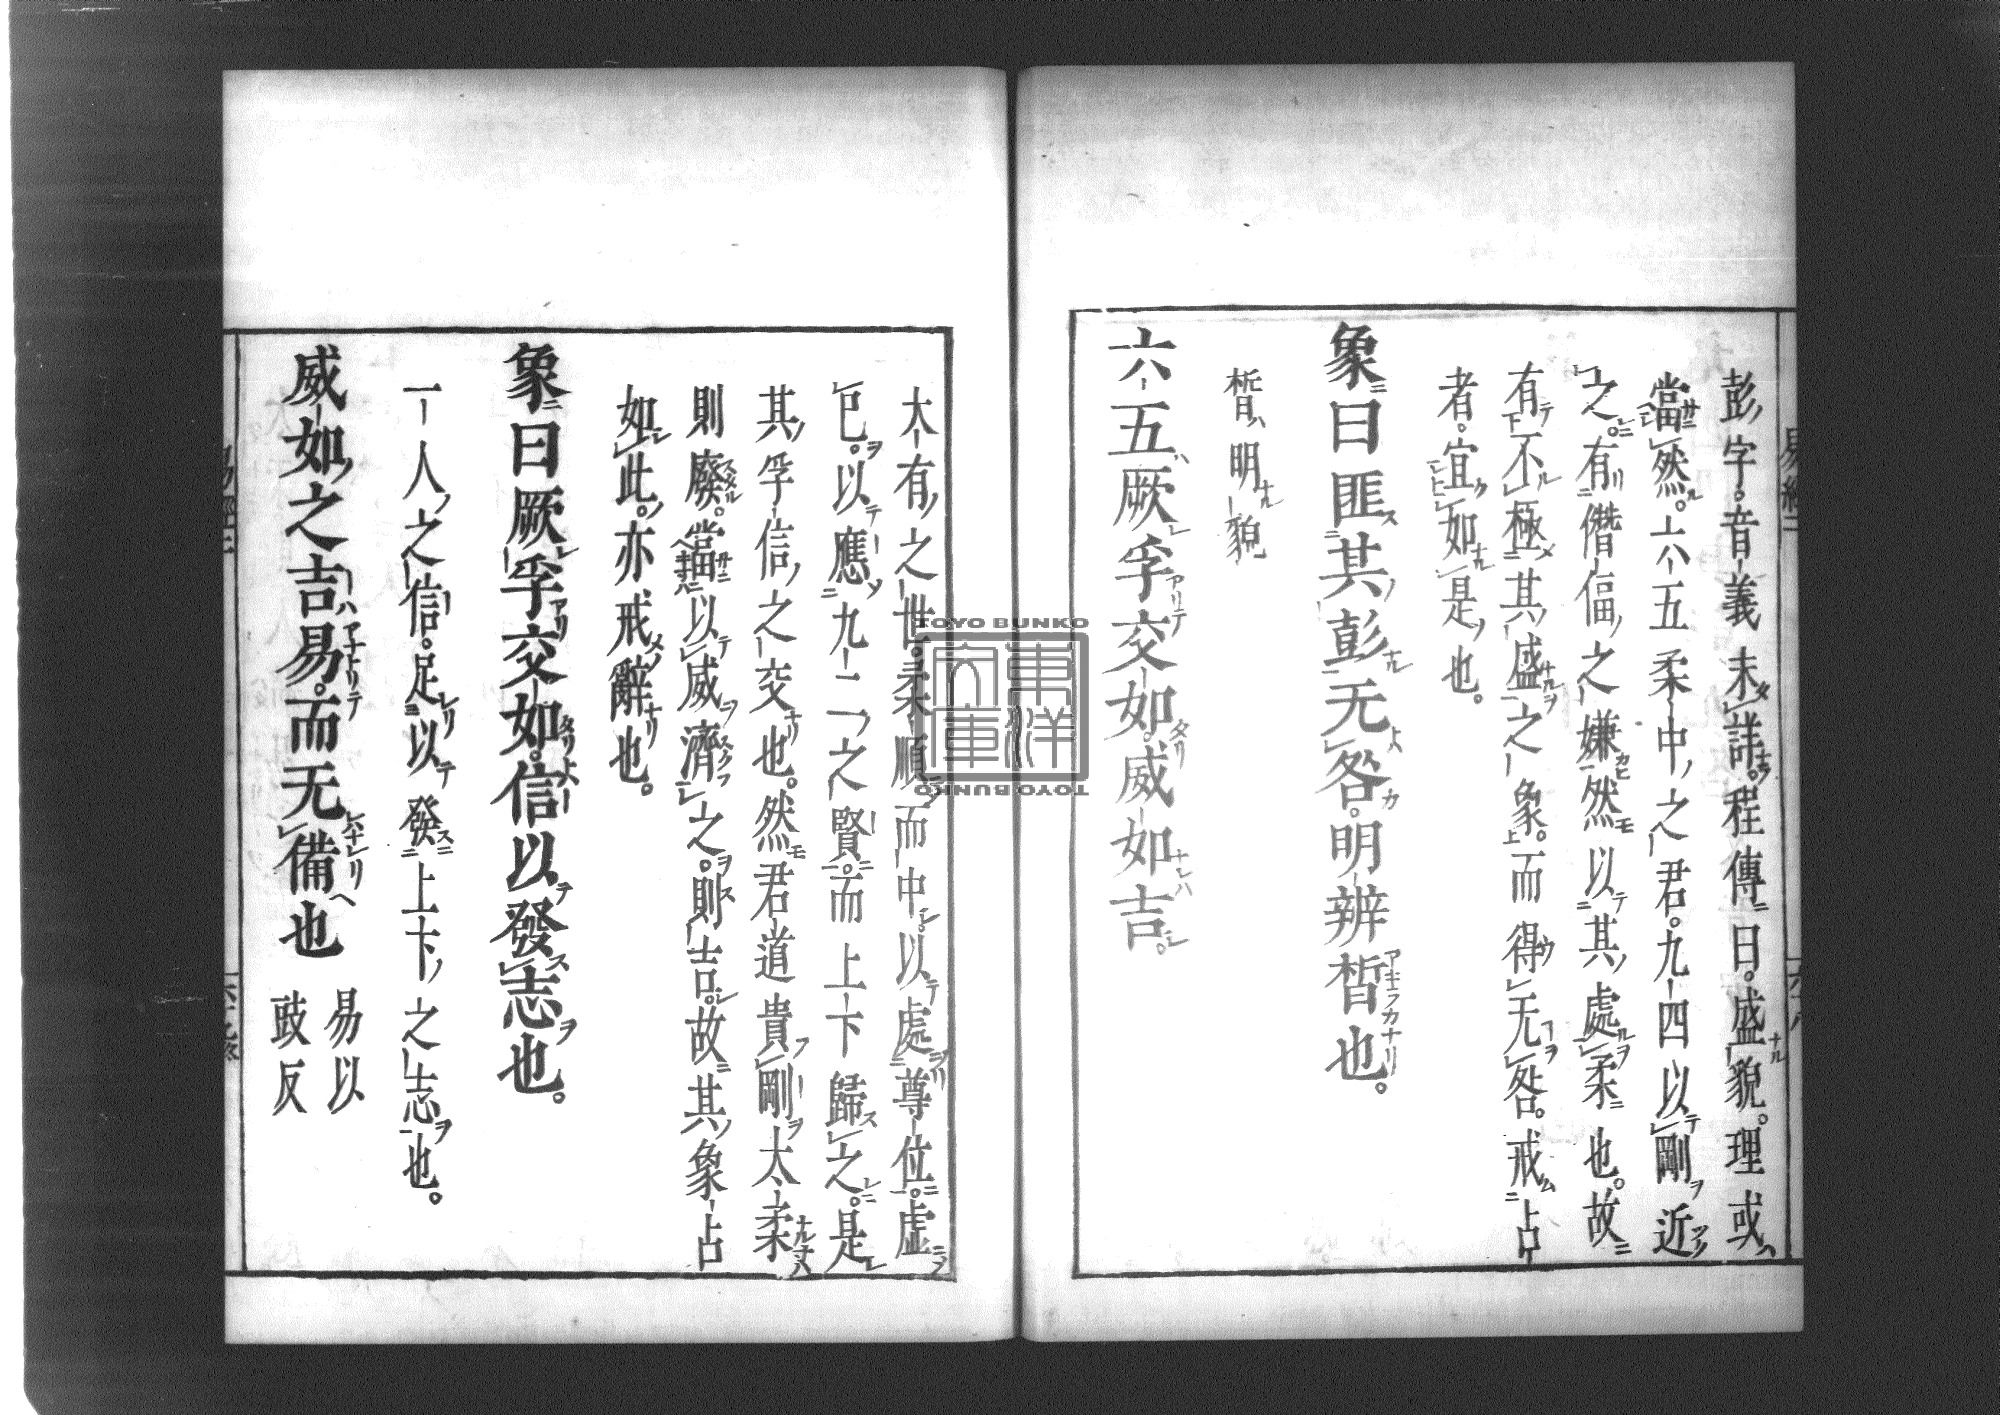 彭字音義未詳。程傳曰。盛貌。理或
當然。六五柔中之君。九四以剛近
之。有僭偪之嫌。然以其處柔也。故
有不極其盛之象。而得无咎。戒占
者。宜如是也。
象曰匪其彭无咎。明辨晳也。
晳明貌
六五厥孚交如。威如吉。
大有之世。柔順而中。以處尊位。虛
己。以應九二之賢。而上下歸之。是
其孚信之交也。然君道貴剛。太柔
則廢。當以威濟之。則吉。故其象占
如此。亦戒辭也。
象曰厥孚交如。信以發志也。
一人之信。足以發上下之志也。
威如之吉易。而无備也
易以
豉反
TOYO BUNKO
東洋文庫
TOYO BUNKO TOYO BUNKO